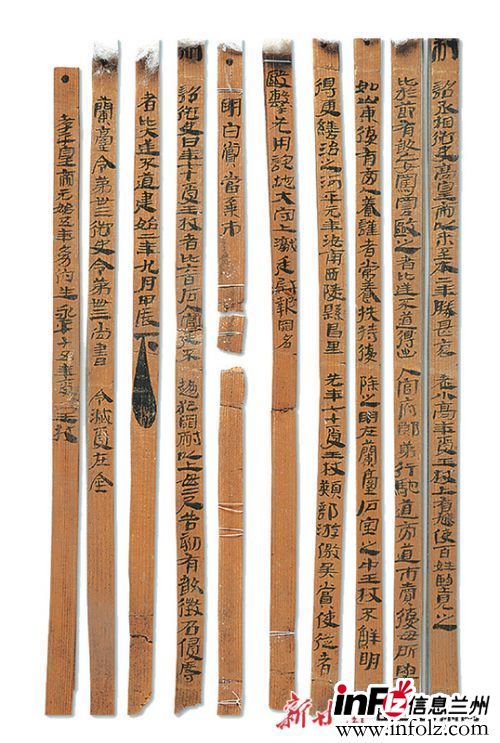 制詔丞相御史高皇帝以來至本二年勝甚哀老小高年受王杖上有鳩使百姓望見之
比於節有敢妄罵詈毆之者比逆不道得出入官府郎第行馳道旁道市賣復毋所與
如山東復有旁人養謹者常養扶持復除之明在蘭臺石室之中王杖不鮮明
得更繕治之河平元年汝南西陵縣昌里先年七十受王杖熲部游徼吳賞使從者
毆擊先用詫地大守上讞廷尉報罪名
明白賞當棄市
制詔御史曰年七十受王杖者比六百石入官廷不趨犯罪耐以上毋二尺告劾有敢徵召侵辱
者比大逆不道建始二年九月甲辰下
蘭臺令第卅三御史令第卌三尚書令滅受在金
孝平皇帝元始五年幼伯生永平十五年受王杖
新
inFLZ 信息兰州
www.infolz.com